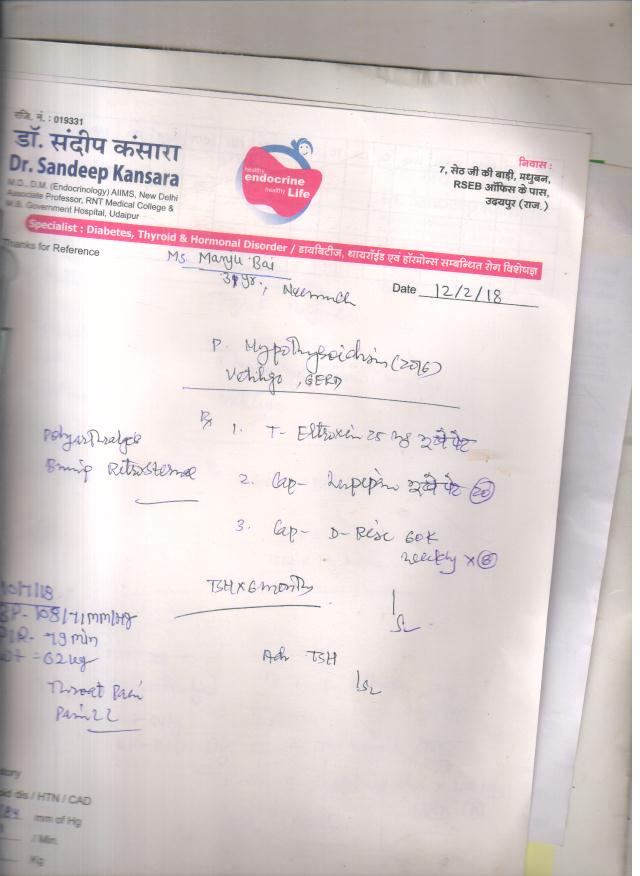 रजि. नं. : 019331
डॉ. संदीप कंसारा
Dr. Sandeep Kansara
M.D., D.M. (Endocrinology) AIIMS, New Delhi
Associate Professor, RNT Medical College &
M.B. Government Hospital, Udaipur
healthy
endocrine
healthy Life
निवास :
7, सेठ जी की बाड़ी, मधुबन,
RSEB ऑफिस के पास,
उदयपुर (राज.)
Specialist : Diabetes, Thyroid & Hormonal Disorder / डायबिटीज, थायरॉईड एवं हॉरमोन्स सम्बन्धित रोग विशेषज्ञ
Thanks for Reference
Ms Manju Bai
Neemuch
Date 12/2/18
P. Hypothyroidism (2016)
Vertigo, GERD
Rx 1. T- Eltroxin 25 mg
Polyarthralgia
Retrosternal
2. Cap-
20
3. Cap- D-Rise 60K
weekly x 8
TSH x 6 months
BP- 108/71 mm/Hg
wt = 62 kg
Adv TSH
Throat Pain
Pain
/ HTN / CAD
mm of Hg
/ Min.
Kg